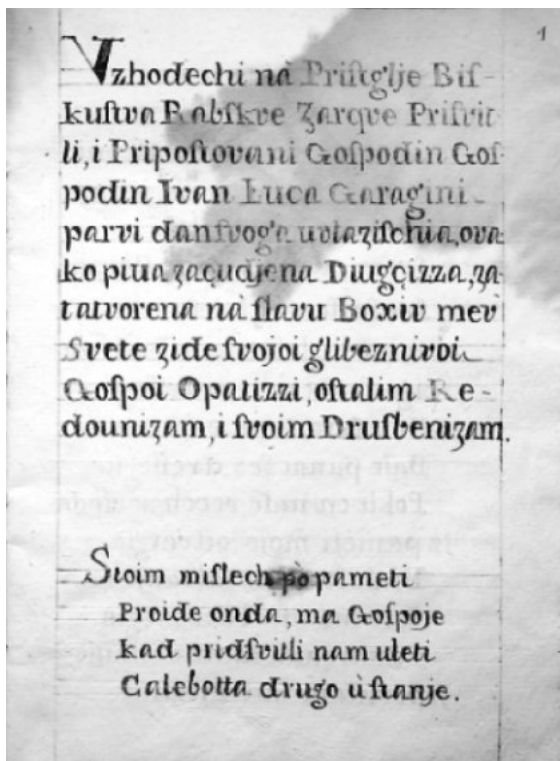 1
Vzhodechi nà Priſtglje Biſ-
kuſtva Rabſkve Zarque Priſvit
li, i Pripoſtovani Goſpodin Goſ-
podin Ivan Luca Garagini
parvi dan ſvoga uvlaziſchia, ova
ko piva zaçudjena Diugçizza, za
tatvorena nà ſlavu Boxiu meu
Svete zide ſvojoi glibeznivoi
Goſpoi Opatizzi, oſtalim Re-
dounizam, i ſvoim Druſbenizam.
Stoim miſlech pò pameti
Proide onda, ma Goſpoje
kad pridſvitli nam uleti
Calebotta drugo ù ſtanje.